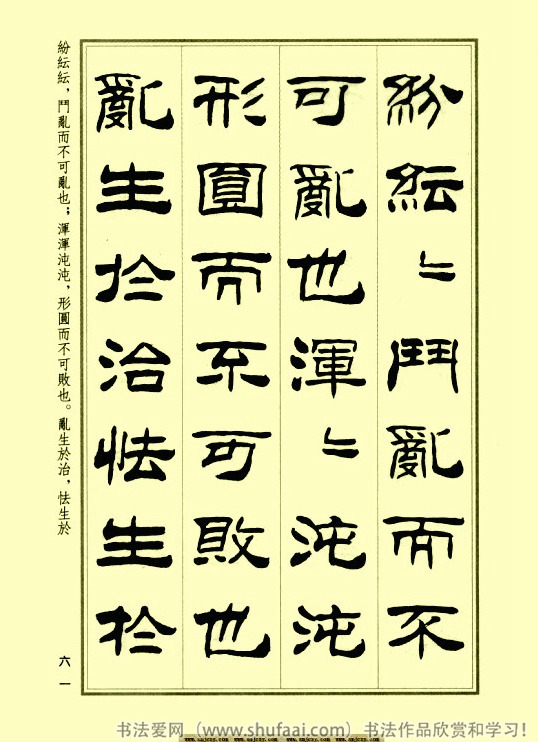 紛紜〻鬥亂而不
可亂也渾〻沌沌
形圓而不可敗也
亂生於治怯生於
紛紜紜，鬥亂而不可亂也；渾渾沌沌，形圓而不可敗也。亂生於治，怯生於
六一
书法爱网（www.shufaai.com）书法作品欣赏和学习！